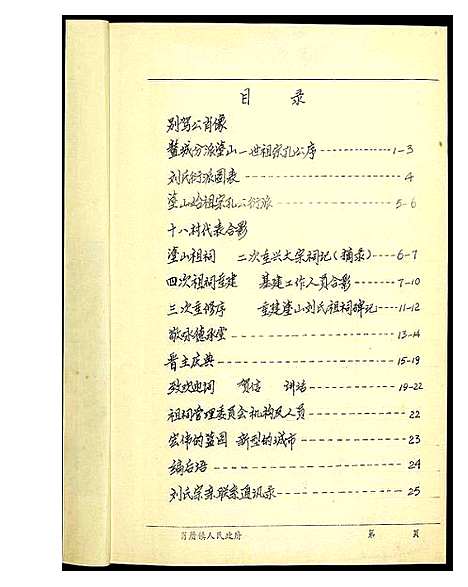 目 录
别驾公肖像
鳌城分派塗山一世祖宗孔公序 1-3
刘氏衍派图表 4
塗山始祖宗孔公衍派 5-6
十八村代表合影
塗山祖祠 二次重兴大宗祠记(摘录) 6-7
四次祖祠重建 基建工作人员合影 7-10
三次重修序 重建塗山刘氏祖祠碑记 11-12
敬咏德永堂 13-14
晋主庆典 15-19
致欢迎词 贺信 讲话 19-22
祖祠管理委员会机构及人员 22
宏伟的蓝图 新型的城市 23
编后语 24
刘氏宗亲联系通讯录 25
镇人民政府 第 页